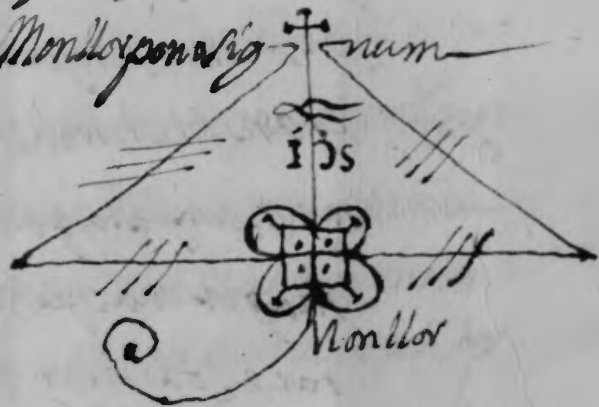 Monllor pono sig-num
IHS
Monllor